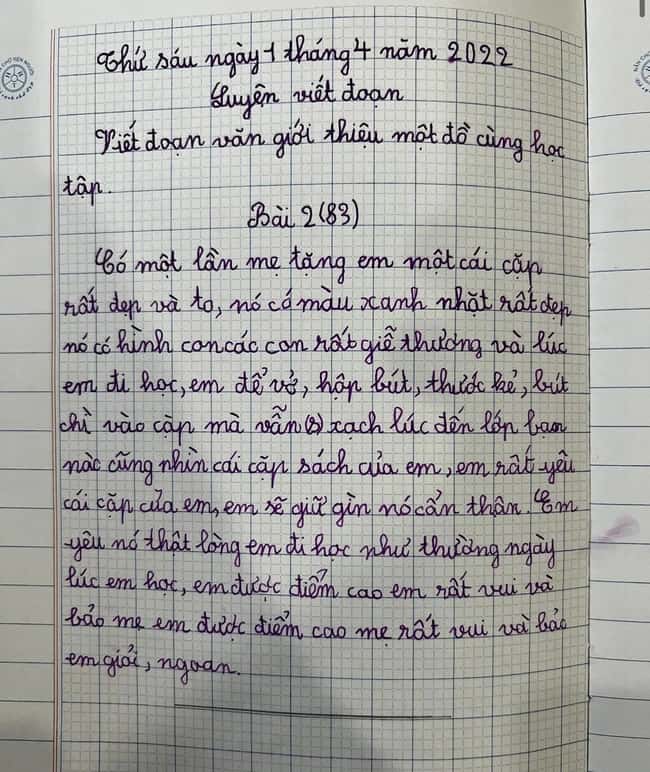 Thứ sáu ngày 1 tháng 4 năm 2022
Luyện viết đoạn
Viết đoạn văn giới thiệu một đồ cùng học
tập.
Bài 2 (83)
Có một lần mẹ tặng em một cái cặp
rất đẹp và to, nó có màu xanh nhạt rất đẹp
nó có hình con các con rất giễ thương và lúc
em đi học, em để vở, hộp bút, thước kẻ, bút
chì vào cặp mà vẫn xạch lúc đến lớp bạn
nàc cũng nhìn cái cặp sách của em, em rất yêu
cái cặp của em, em sẽ giữ gìn nó cẩn thận. Em
yêu nó thật lòng em đi học như thường ngày
lúc em học, em được điểm cao em rất vui và
bảo mẹ em được điểm cao mẹ rất vui và bảo
em giỏi, ngoan.